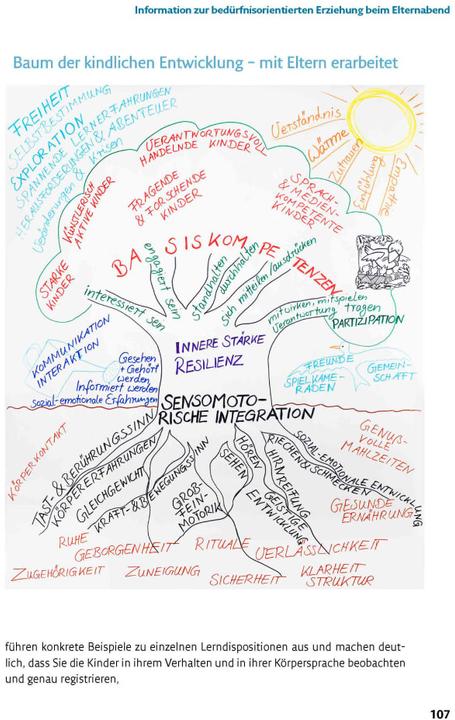 Information zur bedürfnisorientierten Erziehung beim Elternabend
Baum der kindlichen Entwicklung – mit Eltern erarbeitet
FREIHEIT
SELBSTBESTIMMUNG
EXPLORATION
SPANNENDE LERNERFAHRUNGEN
HERAUSFORDERUNGEN & ABENTEUER
Veränderungen & Krisen
Verständnis
Wärme
Zutrauen
Einfühlung
Empathie
VERANTWORTUNGSVOLL
HANDELNDE KINDER
KÜNSTLERISCH
AKTIVE KINDER
FRAGENDE
& FORSCHENDE
KINDER
SPRACH-
& MEDIEN-
KOMPETENTE
KINDER
STARKE
KINDER
BASISKOMPETENZEN
interessiert sein
engagiert sein
standhalten
durchhalten
sich mitteilen/ausdrücken
mitwirken, mitspielen
Verantwortung tragen
PARTIZIPATION
KOMMUNIKATION
INTERAKTION
Gesehen
+ Gehört
werden
Informiert werden
Sozial-emotionale Erfahrungen
INNERE STÄRKE
RESILIENZ
FREUNDE
SPIELKAME-
RADEN
GEMEIN-
SCHAFT
SENSOMOTO-
RISCHE INTEGRATION
KÖRPERKONTAKT
TAST- & BERÜHRUNGSSINN
KÖRPERERFAHRUNGEN
GLEICHGEWICHT
KRAFT- & BEWEGUNGSSINN
GROß-
FEIN-
MOTORIK
SEHEN
HÖREN
HIRNREIFUNG
GEISTIGE
ENTWICKLUNG
RIECHEN & SCHMECKEN
SOZIAL-EMOTIONALE ENTWICKLUNG
GENUß-
VOLLE
MAHLZEITEN
GESUNDE
ERNÄHRUNG
RUHE
GEBORGENHEIT
RITUALE
VERLÄSSLICHKEIT
ZUGEHÖRIGKEIT
ZUNEIGUNG
SICHERHEIT
KLARHEIT
STRUKTUR
führen konkrete Beispiele zu einzelnen Lerndispositionen aus und machen deut-
lich, dass Sie die Kinder in ihrem Verhalten und in ihrer Körpersprache beobachten
und genau registrieren,
107